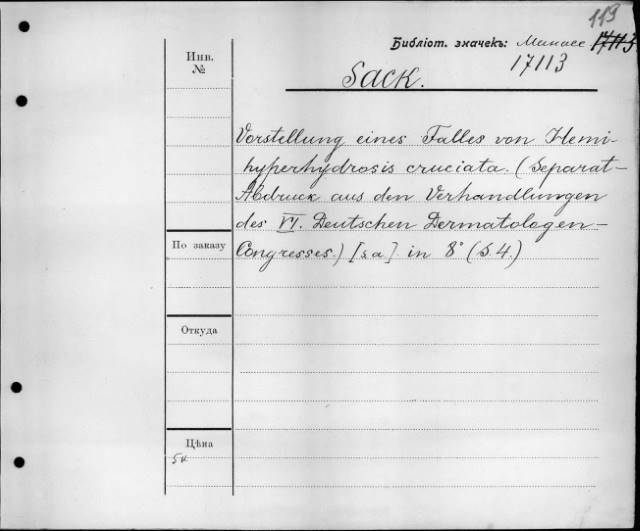 119
Библіот. значекъ: Минасс 17113
17113
Инв.
№
Sack.
Vorstellung eines Falles von Hemi-
hyperhydrosis cruciata. (Separat-
Abdruck aus den Verhandlungen
des VI. Deutschen Dermatologen-
Congresses.) [s.a.] in 8° (S. 4.)
По заказу
Откуда
Цѣна
5к